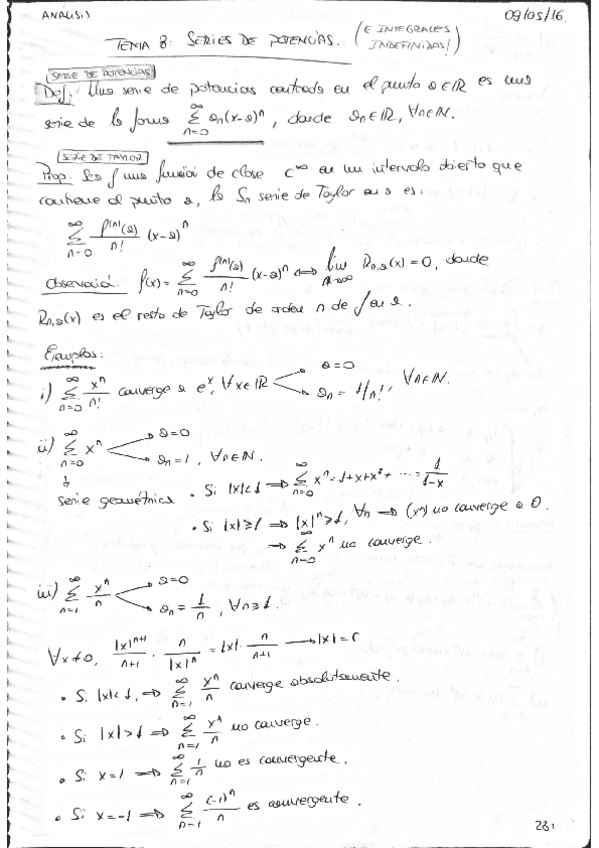 ANÁLISIS 09/05/16
TEMA 8: SERIES DE POTENCIAS. (E INTEGRALES INDEFINIDAS!)
SERIE DE POTENCIAS
Def: Una serie de potencias centrada en el punto a∈ℝ es una
serie de la forma ∑_{n=0}^{∞} a_n(x-a)^n, donde a_n∈ℝ, ∀n∈ℕ.
SERIE DE TAYLOR
Prop: Sea f una función de clase C^∞ en un intervalo abierto que
contiene al punto a, la Sn serie de Taylor en a es:
∑_{n=0}^{∞} f^{(n)}(a)/n! (x-a)^n
Observación: f(x) = ∑_{n=0}^{∞} f^{(n)}(a)/n! (x-a)^n ⟺ lim_{n→∞} R_{n,a}(x) = 0, donde
R_{n,a}(x) es el resto de Taylor de orden n de f en a.
Ejemplos:
i) ∑_{n=0}^{∞} x^n/n! converge a e^x, ∀x∈ℝ → a=0
→ a_n = 1/n!, ∀n∈ℕ.
ii) ∑_{n=0}^{∞} x^n → a=0
→ a_n=1, ∀n∈ℕ.
↓
serie geométrica • Si |x|<1 ⟹ ∑_{n=0}^{∞} x^n = 1+x+x²+ ... = 1/(1-x)
• Si |x|≥1 ⟹ |x|^n ≥1, ∀n → (x^n) no converge a 0.
→ ∑_{n=0}^{∞} x^n no converge.
iii) ∑_{n=1}^{∞} x^n/n → a=0
→ a_n = 1/n, ∀n≥1.
∀x≠0, |x|^{n+1}/(n+1) · n/|x|^n = |x| · n/(n+1) → |x| = r
• Si |x|<1, ⟹ ∑_{n=1}^{∞} x^n/n converge absolutamente.
• Si |x|>1 ⟹ ∑_{n=1}^{∞} x^n/n no converge.
• Si x=1 ⟹ ∑_{n=1}^{∞} 1/n no es convergente.
• Si x=-1 ⟹ ∑_{n=1}^{∞} (-1)^n/n es convergente.